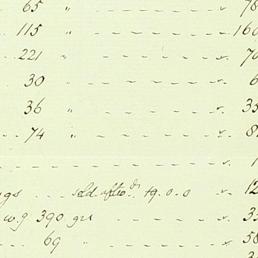 65 " - - - - - - - 78
115 " - - - - - - - 160
221 " - - - - - - - 70
30 " - - - - - - -
36 " - - - - - - - 35
74 " - - - - - - - 8
- - - - - - - - - 1
gs - - sold 19.0.0 - - 12
w.g 390 grs - - - - - 33
69 " - - - - - - - 58